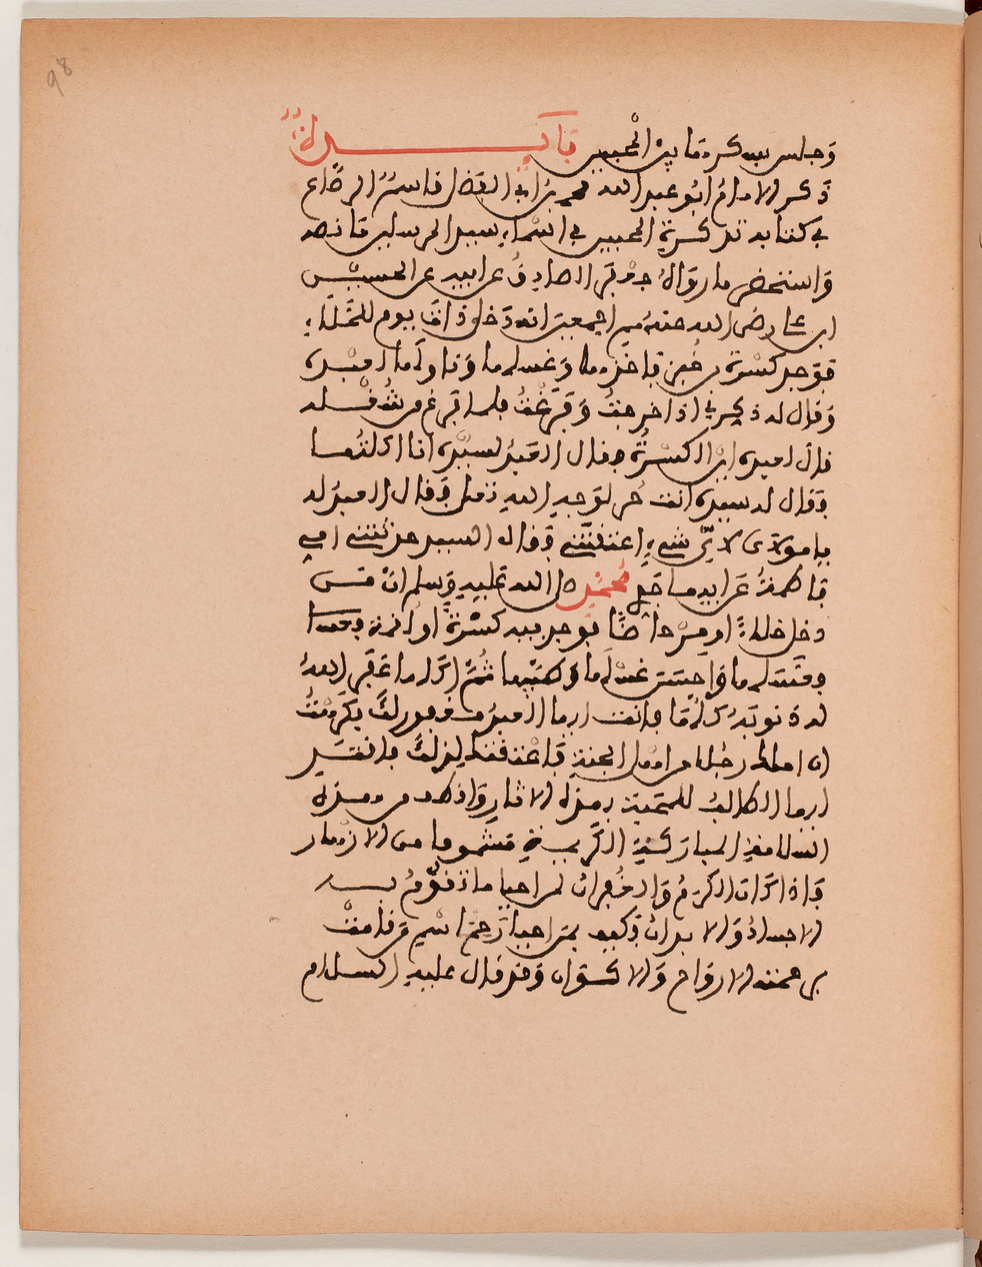 98
وجلس يبكي وقابل المحبين فائدة
ذكر الامام ابو عبد الله محمد بن ابي الفضل قاسم الرصاع
في كتابه تذكرة المحبين في اسماء سيد المرسلين ما نصه
واستحضر ما رواه جعفر الصادق عن ابيه عن الحسين
ابن علي رضي الله عنهم اجمعين انه دخل ذات يوم للخلاء
فوجد كسرة من خبز فاخذها وغسلها وناولها لعبده
وقال له ذكرني اذا خرجت وفرغت فلما فرغ من شغله
قال لعبده اين الكسرة فقال العبد لسيده انا اكلتها
فقال له سيده انت حر لوجه الله تعالى فقال العبد له
يا مولاي لاي شيء اعتقتني فقال له السيد حدثتني امي
فاطمة عن ابيها محمد صلى الله عليه وسلم ان من
دخل خلاء او مرحاضا فوجد فيه كسرة او لقمة
فغسلها واحسن غسلها واكلها ثم اكلها غفر الله
له ذنوبه كلها وانت ايها العبد مغفور لك فكرهت
ان املك رجلا من اهل الجنة فاعتقتك لذلك فانظر
ايها الطالب للمحبة بهذه الاثار واذكر من هذه
السلامة المباركة الكريمة مشموما من الازهار
فاذا كان الكرم والغفران لمن احيا ما تقوم به
الاجساد والابدان فكيف بمن احيا رحمة اسم من قامت
بمحبته الارواح والاكوان وقد قال عليه السلام